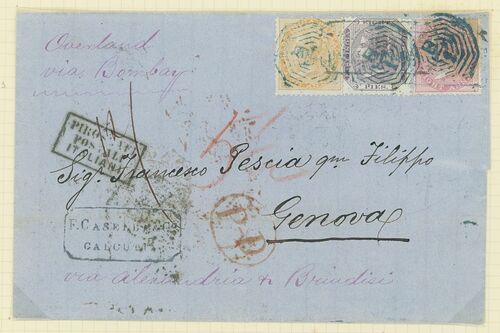 Overland
via Bombay
PIROSCAFI
POSTALI
ITALIANI
Sig. Francesco Pescia qm Filippo
Genova
P.D.
CALCUTTA
via Alexandria & Brindisi